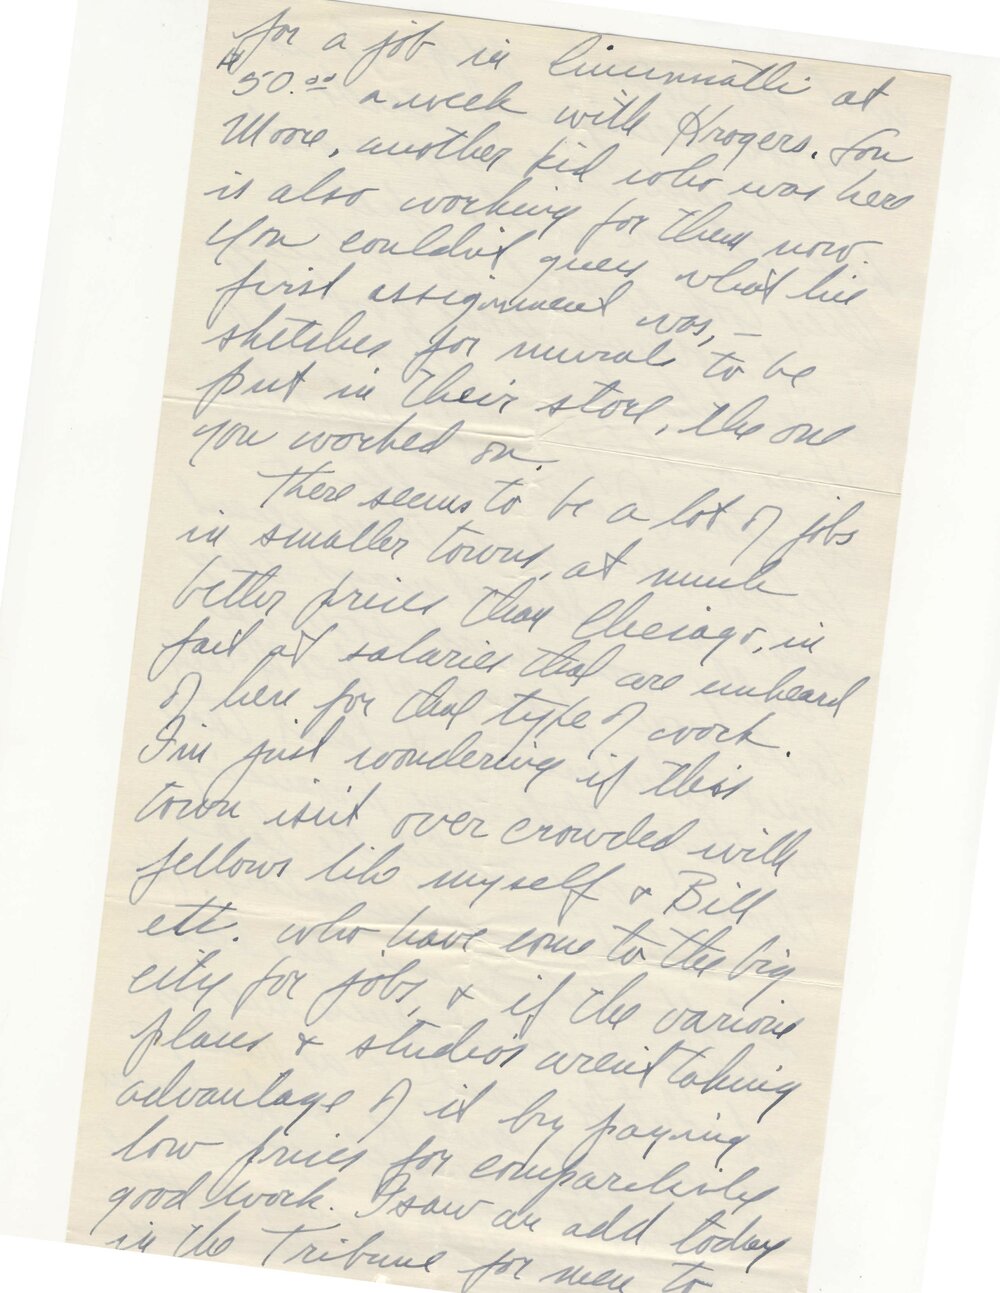 for a job in Cincinnatti at
$50.00 a week with Krogers. Lou
Moore, another kid who was here
is also working for them now.
You couldn't guess what his
first assignment was, —
sketches for murals to be
put in their store, the one
you worked on.
There seems to be a lot of jobs
in smaller towns, at much
better prices than Chicago, in
fact at salaries that are unheard
of here for that type of work.
I'm just wondering if this
town isn't over crowded with
fellows like myself & Bill
ett. who have come to the big
city for jobs, & if the various
places & studios aren't taking
advantage of it by paying
low prices for comparitively
good work. I saw an add today
in the Tribune for men to